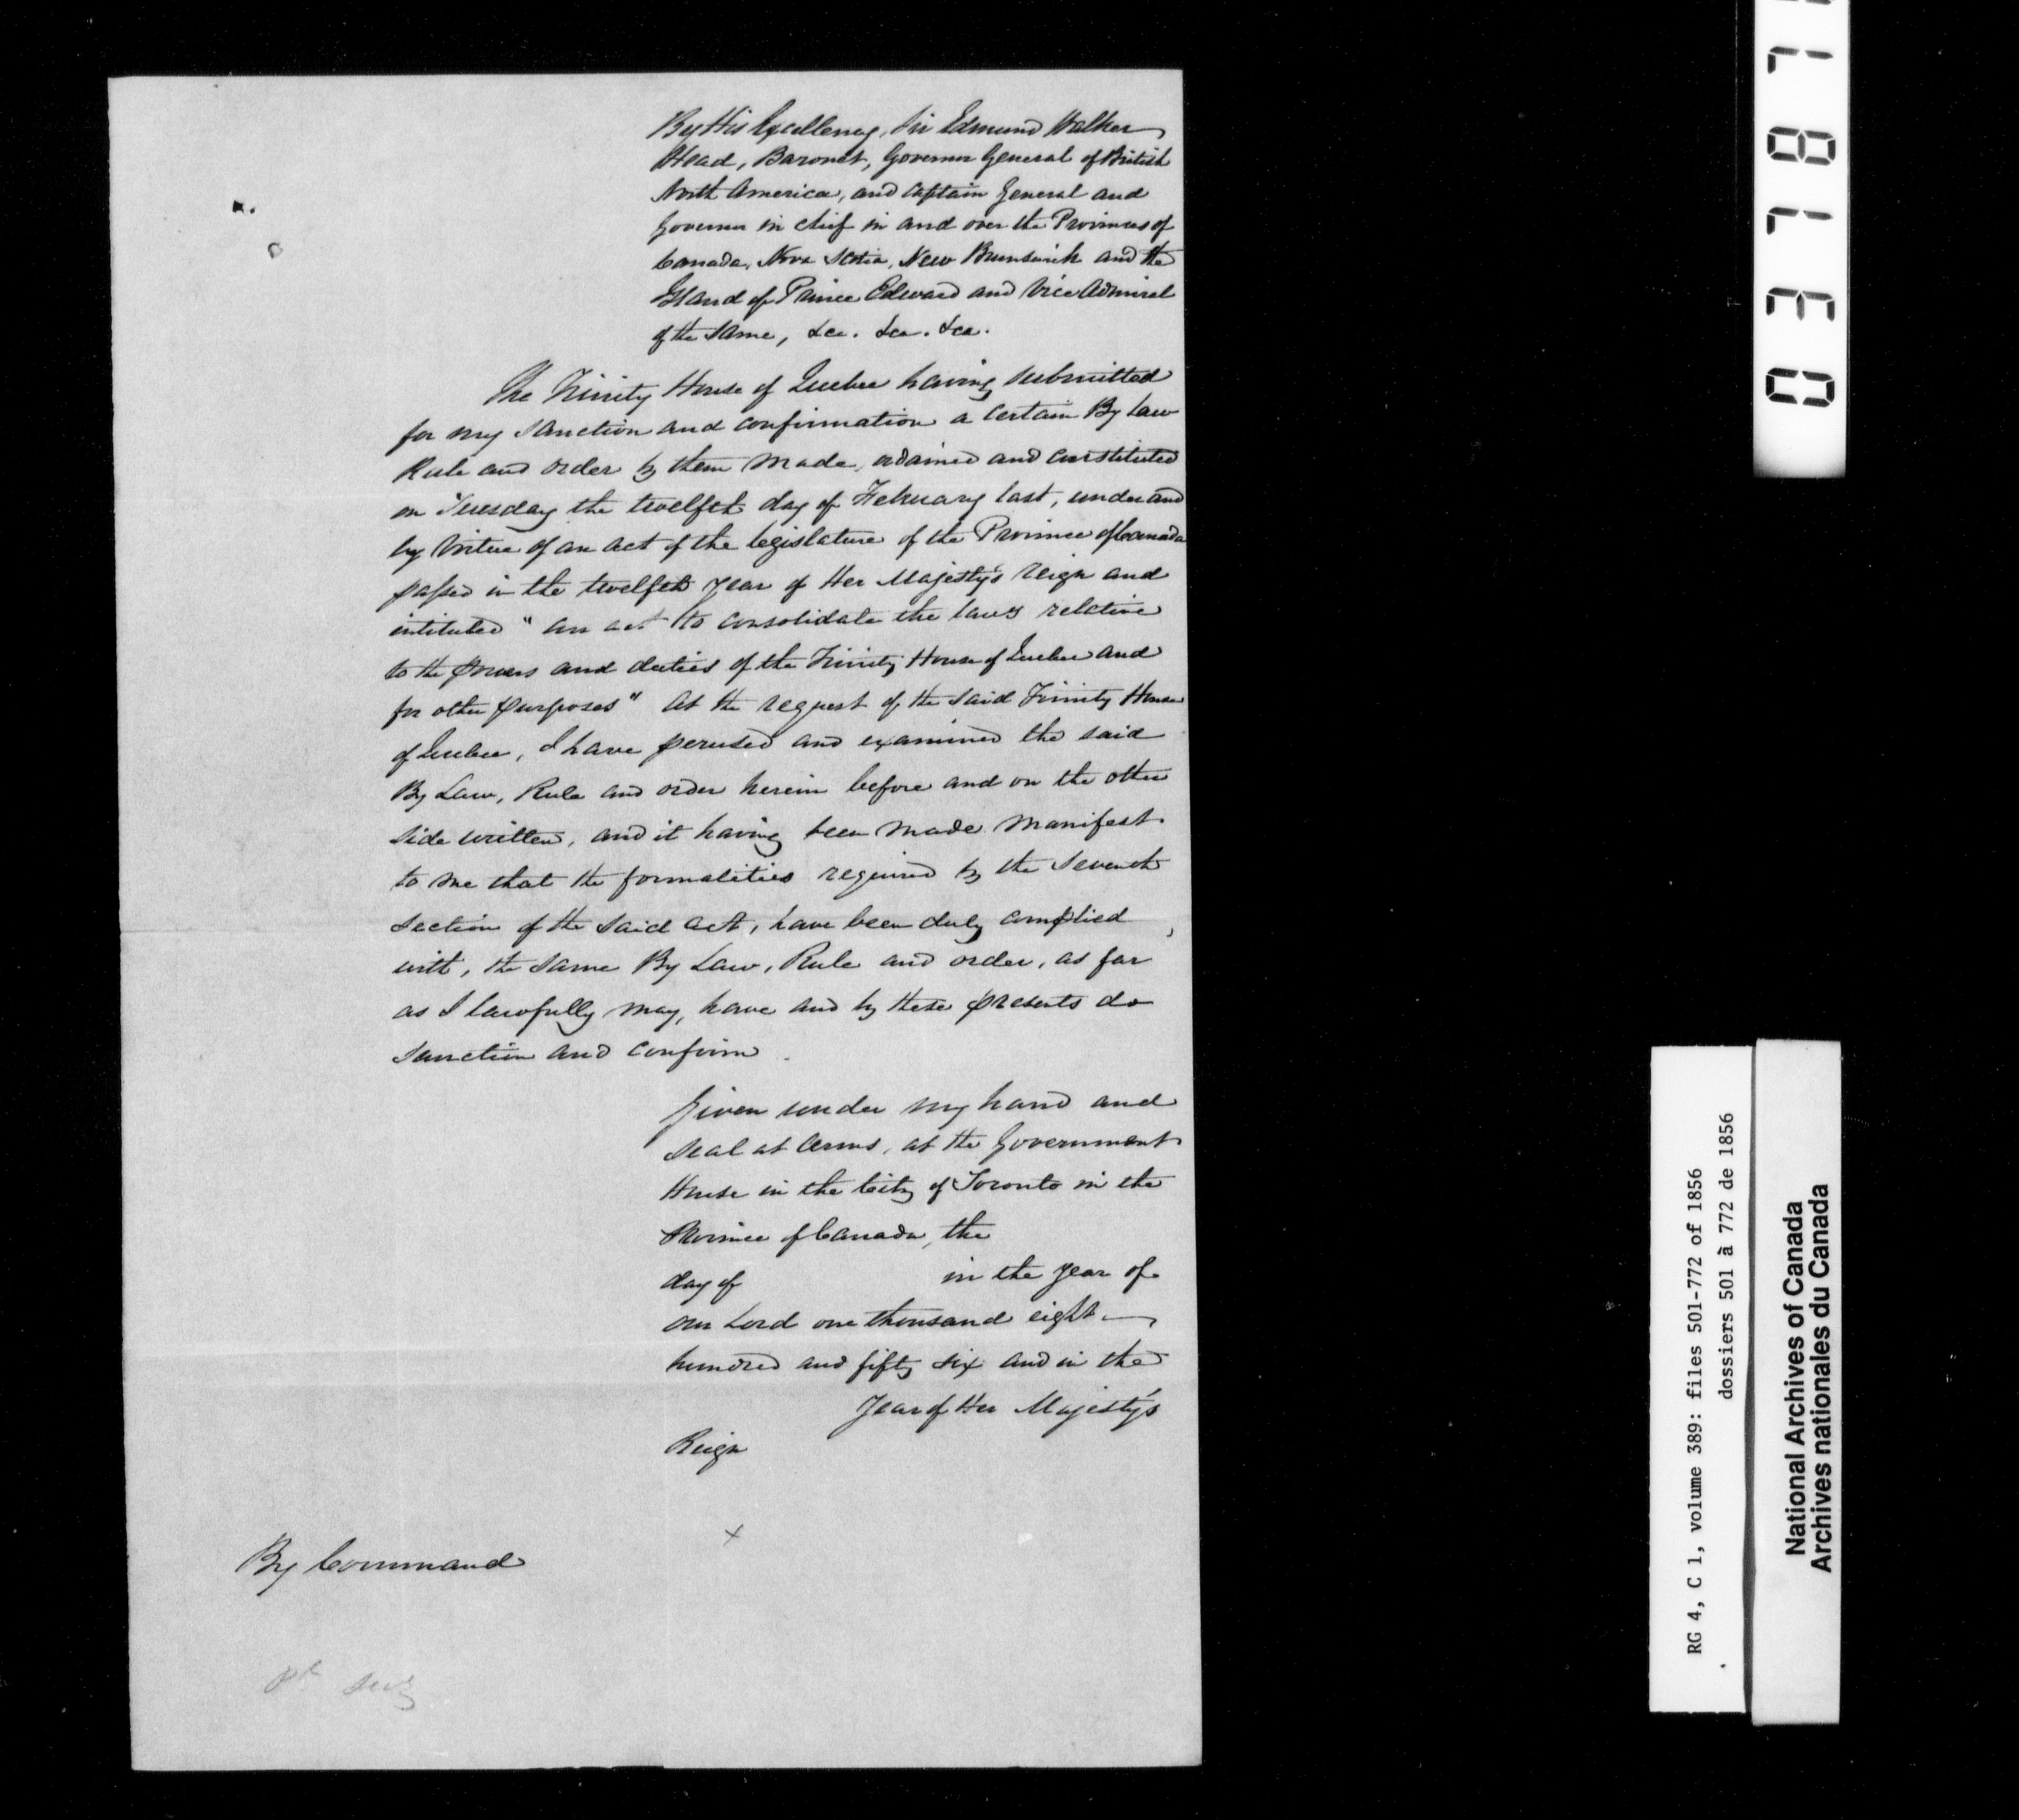 By His Excellency, Sir Edmund Walker
Head, Baronet, Governor General of British
North America, and Captain General and
Governor in chief in and over the Provinces of
Canada, Nova Scotia, New Brunswick and the
Island of Prince Edward and Vice Admiral
of the Same, &ca. &ca. &ca.
The Trinity House of Quebec having submitted
for my sanction and confirmation a certain By Law
Rule and order by them made, ordained and constituted
on Tuesday the twelfth day of February last, under and
by Virtue of an act of the legislature of the Province of Canada
passed in the twelfth year of Her Majesty's reign and
intituled "an act to consolidate the laws relative
to the powers and duties of the Trinity House of Quebec and
for other purposes" At the request of the said Trinity House
of Quebec, I have perused and examined the said
By Law, Rule and order herein before and on the other
side written, and it having been made manifest
to me that the formalities required by the Seventh
Section of the said act, have been duly complied
with, the same By Law, Rule and order, as far
as I lawfully may, have and by these presents do
sanction and confirm.
Given under my hand and
Seal at Arms, at the Government
House in the City of Toronto in the
Province of Canada, the
day of in the year of
our Lord one thousand eight
hundred and fifty six and in the
Year of Her Majesty's
Reign
x
By Command
037187
RG 4, C 1, volume 389: files 501-772 of 1856
dossiers 501 à 772 de 1856
National Archives of Canada
Archives nationales du Canada